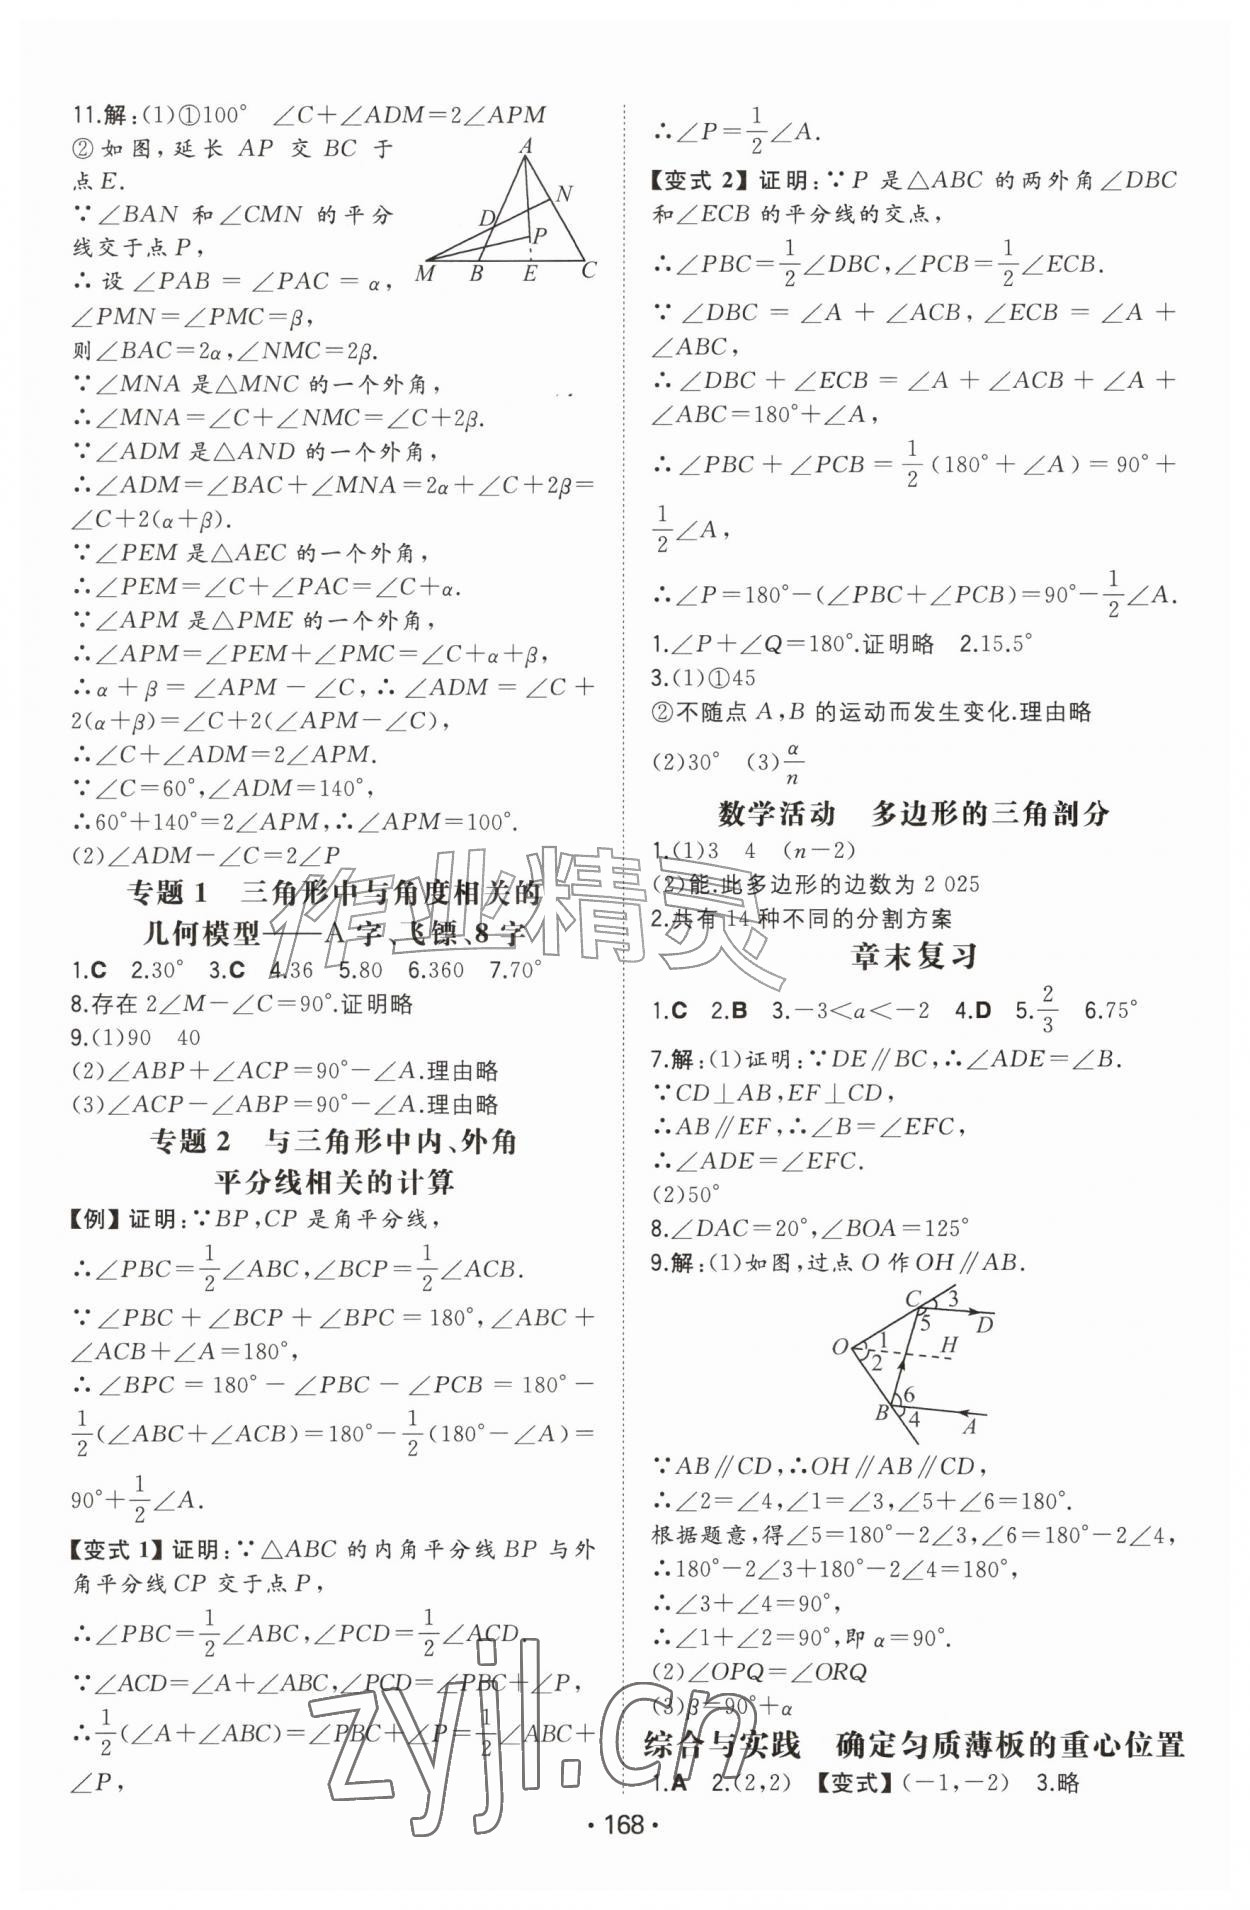 11.解:(1)①100° ∠C+∠ADM=2∠APM
②如图,延长 AP 交 BC 于
点E.
∵∠BAN 和∠CMN 的平分
线交于点P,
∴设∠PAB=∠PAC=α,
∠PMN=∠PMC=β,
则∠BAC=2α,∠NMC=2β.
∵∠MNA是△MNC的一个外角,
∴∠MNA=∠C+∠NMC=∠C+2β.
∵∠ADM是△AND的一个外角,
∴∠ADM=∠BAC+∠MNA=2α+∠C+2β=
∠C+2(α+β).
∵∠PEM是△AEC的一个外角,
∴∠PEM=∠C+∠PAC=∠C+α.
∵∠APM是△PME的一个外角,
∴∠APM=∠PEM+∠PMC=∠C+α+β,
∴α+β=∠APM-∠C,∴∠ADM=∠C+
2(α+β)=∠C+2(∠APM-∠C),
∴∠C+∠ADM=2∠APM.
∵∠C=60°,∠ADM=140°,
∴60°+140°=2∠APM,∴∠APM=100°.
(2)∠ADM-∠C=2∠P
A
N
D
P
M B E C
专题1 三角形中与角度相关的
几何模型——A字、飞镖、8字
1.C 2.30° 3.C 4.36 5.80 6.360 7.70°
8.存在 2∠M-∠C=90°.证明略
9.(1)90 40
(2)∠ABP+∠ACP=90°-∠A.理由略
(3)∠ACP-∠ABP=90°-∠A.理由略
专题2 与三角形中内、外角
平分线相关的计算
【例】证明:∵BP,CP是角平分线,
∴∠PBC=1/2∠ABC,∠BCP=1/2∠ACB.
∵∠PBC+∠BCP+∠BPC=180°,∠ABC+
∠ACB+∠A=180°,
∴∠BPC=180°-∠PBC-∠PCB=180°-
1/2(∠ABC+∠ACB)=180°-1/2(180°-∠A)=
90°+1/2∠A.
【变式1】证明:∵△ABC的内角平分线BP与外
角平分线CP交于点P,
∴∠PBC=1/2∠ABC,∠PCD=1/2∠ACD.
∵∠ACD=∠A+∠ABC,∠PCD=∠PBC+∠P,
∴1/2(∠A+∠ABC)=∠PBC+∠P=1/2∠ABC+
∠P,
∴∠P=1/2∠A.
【变式2】证明:∵P是△ABC的两外角∠DBC
和∠ECB的平分线的交点,
∴∠PBC=1/2∠DBC,∠PCB=1/2∠ECB.
∵∠DBC=∠A+∠ACB,∠ECB=∠A+
∠ABC,
∴∠DBC+∠ECB=∠A+∠ACB+∠A+
∠ABC=180°+∠A,
∴∠PBC+∠PCB=1/2(180°+∠A)=90°+
1/2∠A,
∴∠P=180°-(∠PBC+∠PCB)=90°-1/2∠A.
1.∠P+∠Q=180°.证明略 2.15.5°
3.(1)①45
②不随点A,B的运动而发生变化.理由略
(2)30° (3)α/n
数学活动 多边形的三角剖分
1.(1)3 4 (n-2)
(2)能.此多边形的边数为2 025
2.共有14种不同的分割方案
章末复习
1.C 2.B 3.-3<a<-2 4.D 5.2/3 6.75°
7.解:(1)证明:∵DE∥BC,∴∠ADE=∠B.
∵CD⊥AB,EF⊥CD,
∴AB∥EF,∴∠B=∠EFC,
∴∠ADE=∠EFC.
(2)50°
8.∠DAC=20°,∠BOA=125°
9.解:(1)如图,过点O作OH∥AB.
C 3
5 D
O 1 H
2
6
B 4 A
∵AB∥CD,∴OH∥AB∥CD,
∴∠2=∠4,∠1=∠3,∠5+∠6=180°.
根据题意,得∠5=180°-2∠3,∠6=180°-2∠4,
∴180°-2∠3+180°-2∠4=180°,
∴∠3+∠4=90°,
∴∠1+∠2=90°,即α=90°.
(2)∠OPQ=∠ORQ
(3)β=90°+α
综合与实践 确定匀质薄板的重心位置
1.A 2.(2,2) 【变式】(-1,-2) 3.略
·168·
作业精灵
zyjl.cn